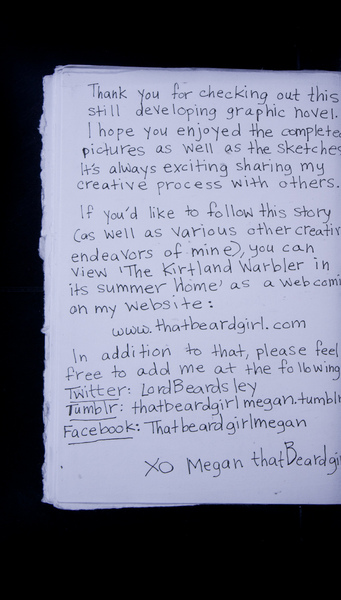 Thank you for checking out this
still developing graphic novel.
I hope you enjoyed the complete
pictures as well as the sketches
It's always exciting sharing my
creative process with others.
If you'd like to follow this story
(as well as various other creativ
endeavors of mine), you can
view 'The Kirtland Warbler in
its summer Home' as a web comi
on my website:
www.thatbeardgirl.com
In addition to that, please feel
free to add me at the following
Twitter: LordBeardsley
Tumblr: thatbeardgirlmegan.tumblr
Facebook: Thatbeardgirlmegan
XO Megan thatBeardgir